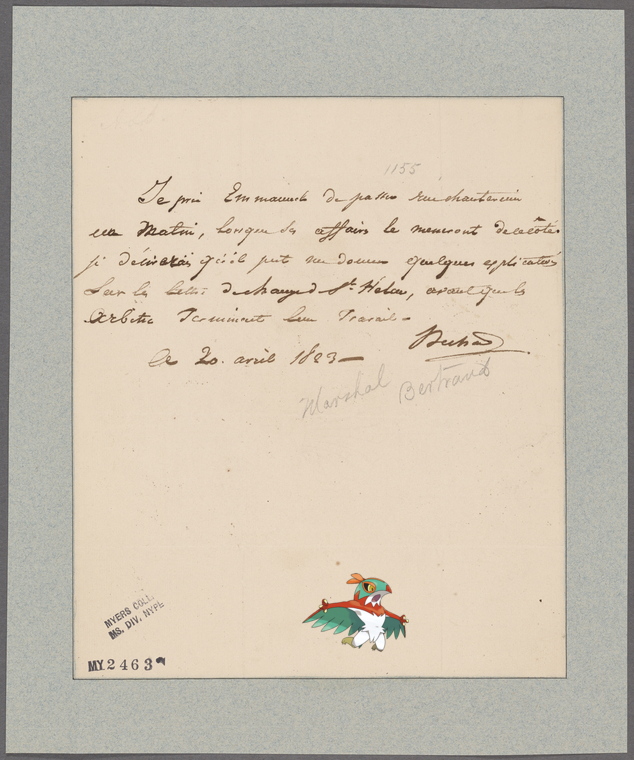 1155
Je prie Emmanuel de passer rue chantereine
un Matin, lorsque ses affaires le meneront de ce côté
je désirerais qu'il put me donner quelques explications
Sur les lettres de change de Ste. Hélène, avant que les
Arbitres Terminent leur Travail -
Bertrand
Le 20. avril 1823 -
Marshal Bertrand
MYERS COLL.
MS. DIV. NYPL
MY 2463